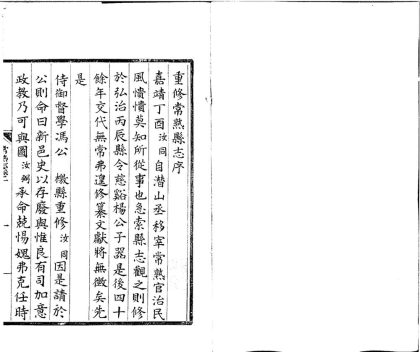 重修常熟縣志序
嘉靖丁酉汝同自潛山丞移宰常熟官治民
風憒憒莫知所從事也急索縣志觀之則修
於弘治丙辰縣令慈谿楊公子器是後四十
餘年交代無常弗遑修纂文獻將無徵矣先
是
侍御督學馮公檄縣重修汝同因是請於
公則命曰新邑史以存廢與惟良有司加意
政教乃可與圖汝弼承命兢惕媿弗克任時